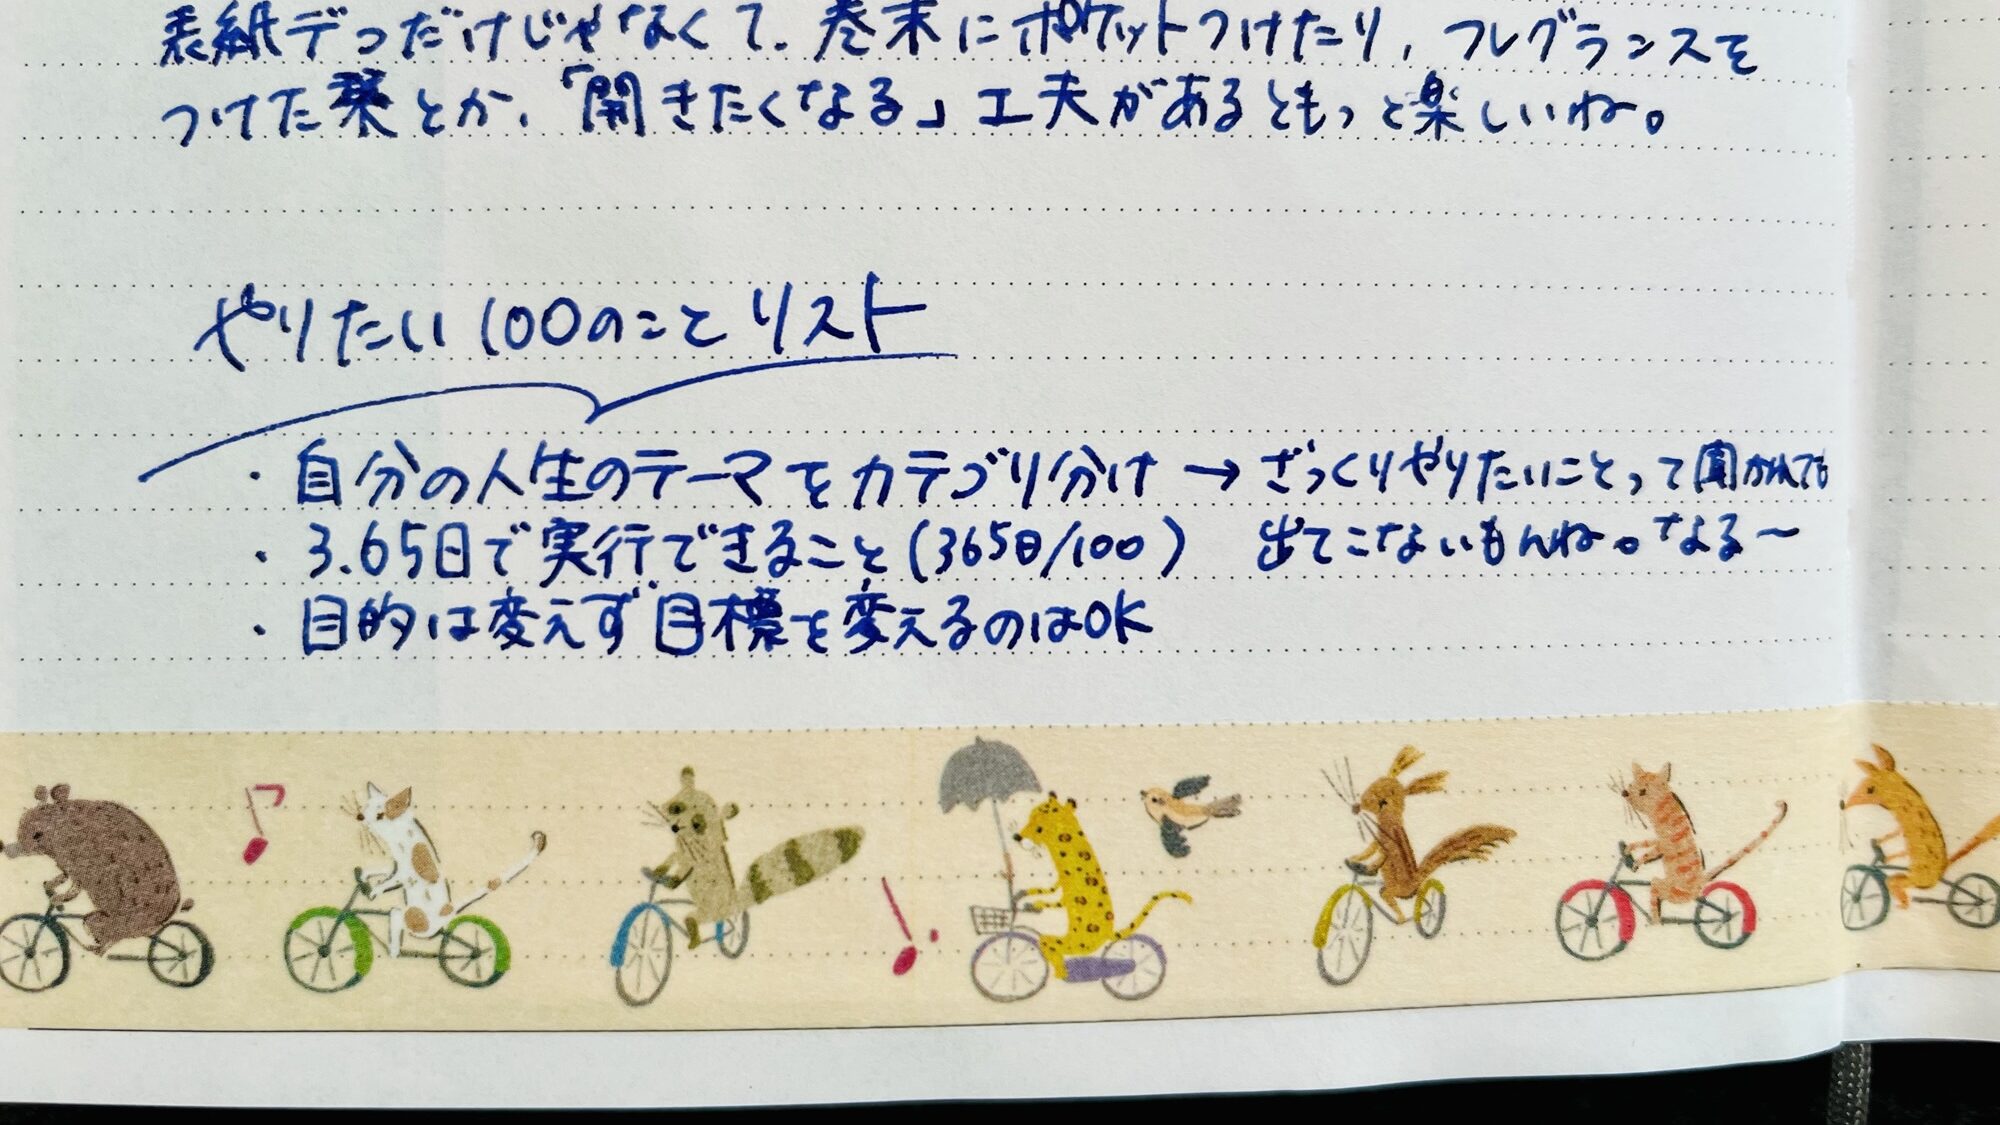 表紙デコだけじゃなくて、巻末にポケットつけたり、フレグランスを
つけた栞とか、「開きたくなる」工夫があるともっと楽しいね。
やりたい100のことリスト
・自分の人生のテーマをカテゴリ分け → ざっくりやりたいことって聞かれても
・3.65日で実行できること(365日/100) 出てこないもんね。なる〜
・目的は変えず目標を変えるのはOK